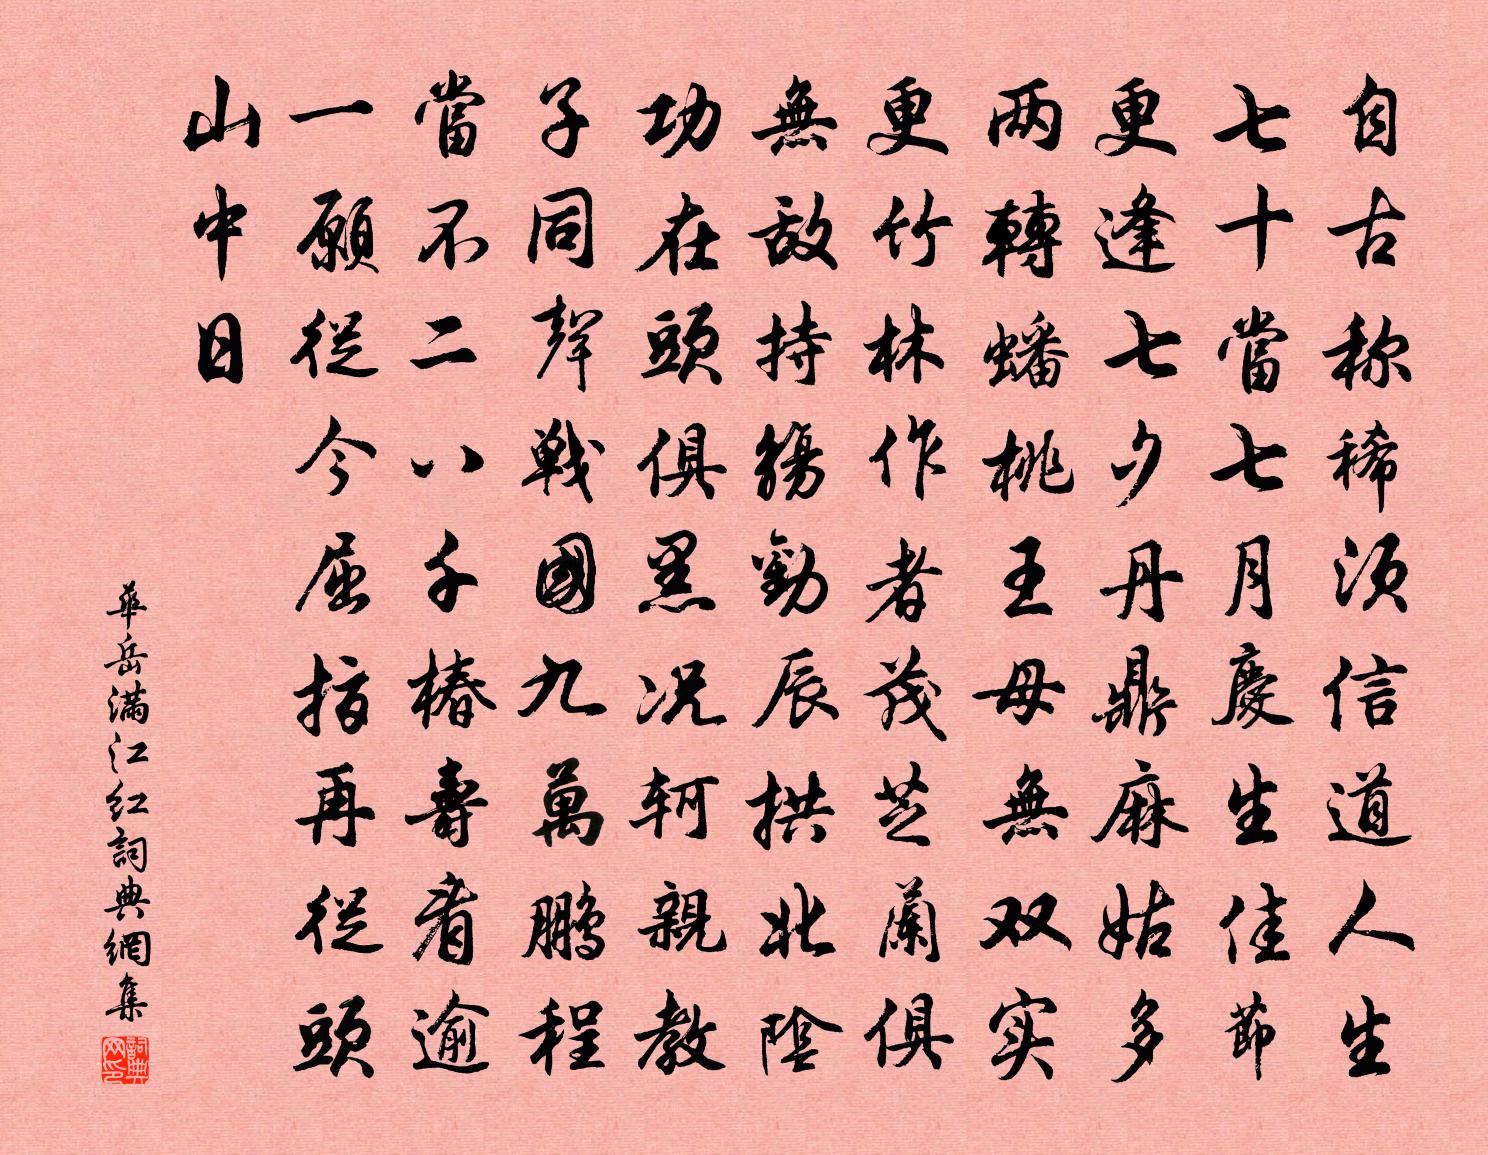 自古称稀须信道人生
七十當七月慶生佳節
更逢七夕丹鼎麻姑多
两轉蟠桃王母無双实
更竹林作者茂芝蘭俱
無敌持觞勸辰拱北陰
功在頭俱黑况轲親教
子同聲戰國九萬鹏程
當不二八千椿壽看逾
一願從今屈指再從頭
山中日
華岳满江红詞典網集
詞典网印